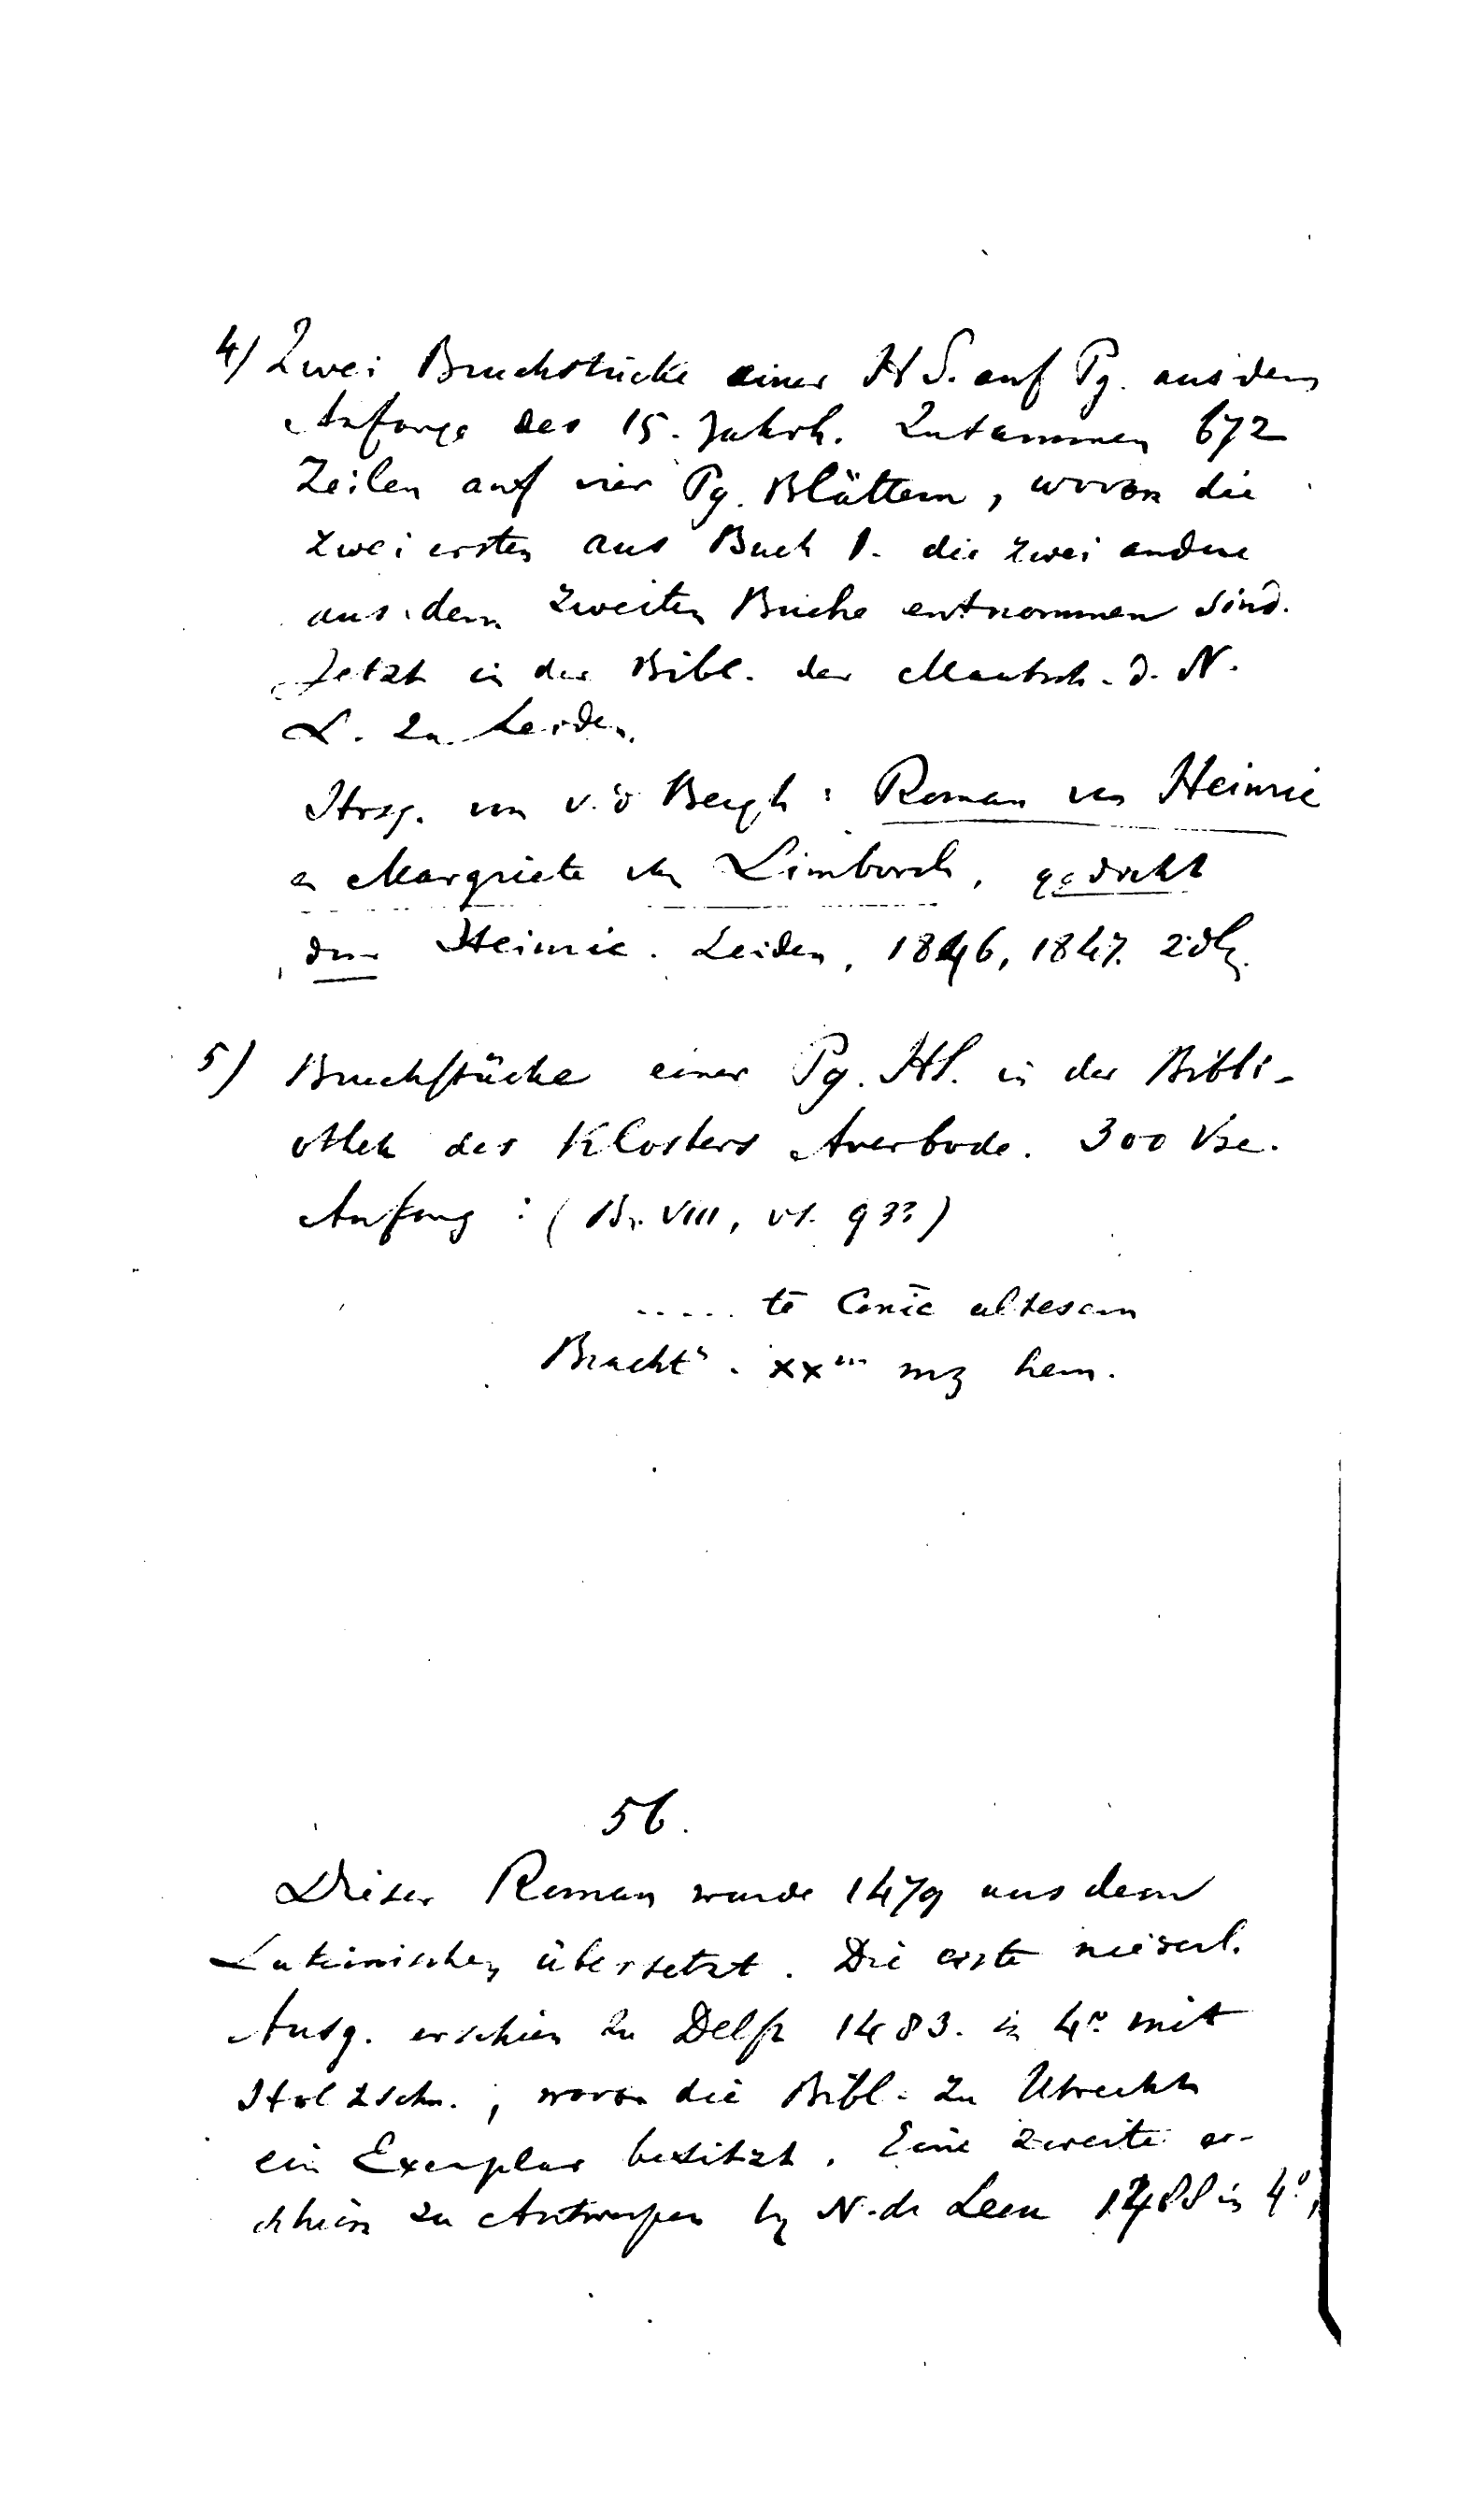 4) Zwei Bruchstücke einer HS. auf Pg. aus dem
Anfange des 15. Jahrh. Zusammen 672
Zeilen auf vier Pg. Blättern, wovon die
zwei ersten aus Buch I. die zwei andere
aus dem zweiten Buche entnommen sind.
Jetzt in der Bibl. der Maatsch. d. N.
L. zu Leiden.
Hrsg. von v. d Bergh : Roman van Heinric
en Margriete van Limborch, gedicht
door Heinric. Leiden, 1846, 1847. 2 dln.
5) Bruchstücke einer Pg. HS. in der Bibli-
othek des Klosters Averbode. 300 Vse.
Anfang : (B. VIII, vs. 93?)
..... te Conīc altesam
Bracht . xx mz hem.
56.
Dieser Roman wurde 1479 aus dem
Lateinischen übersetzt. Die erste niederl.
Ausg. erschien zu Delft 1483. in 4o. mit
Holzschn. , wovon die Bibl. zu Utrecht
ein Exemplar besitzt. Eine zweite er-
schien zu Antwerpen by N. de Leeu 1488 in 4o,